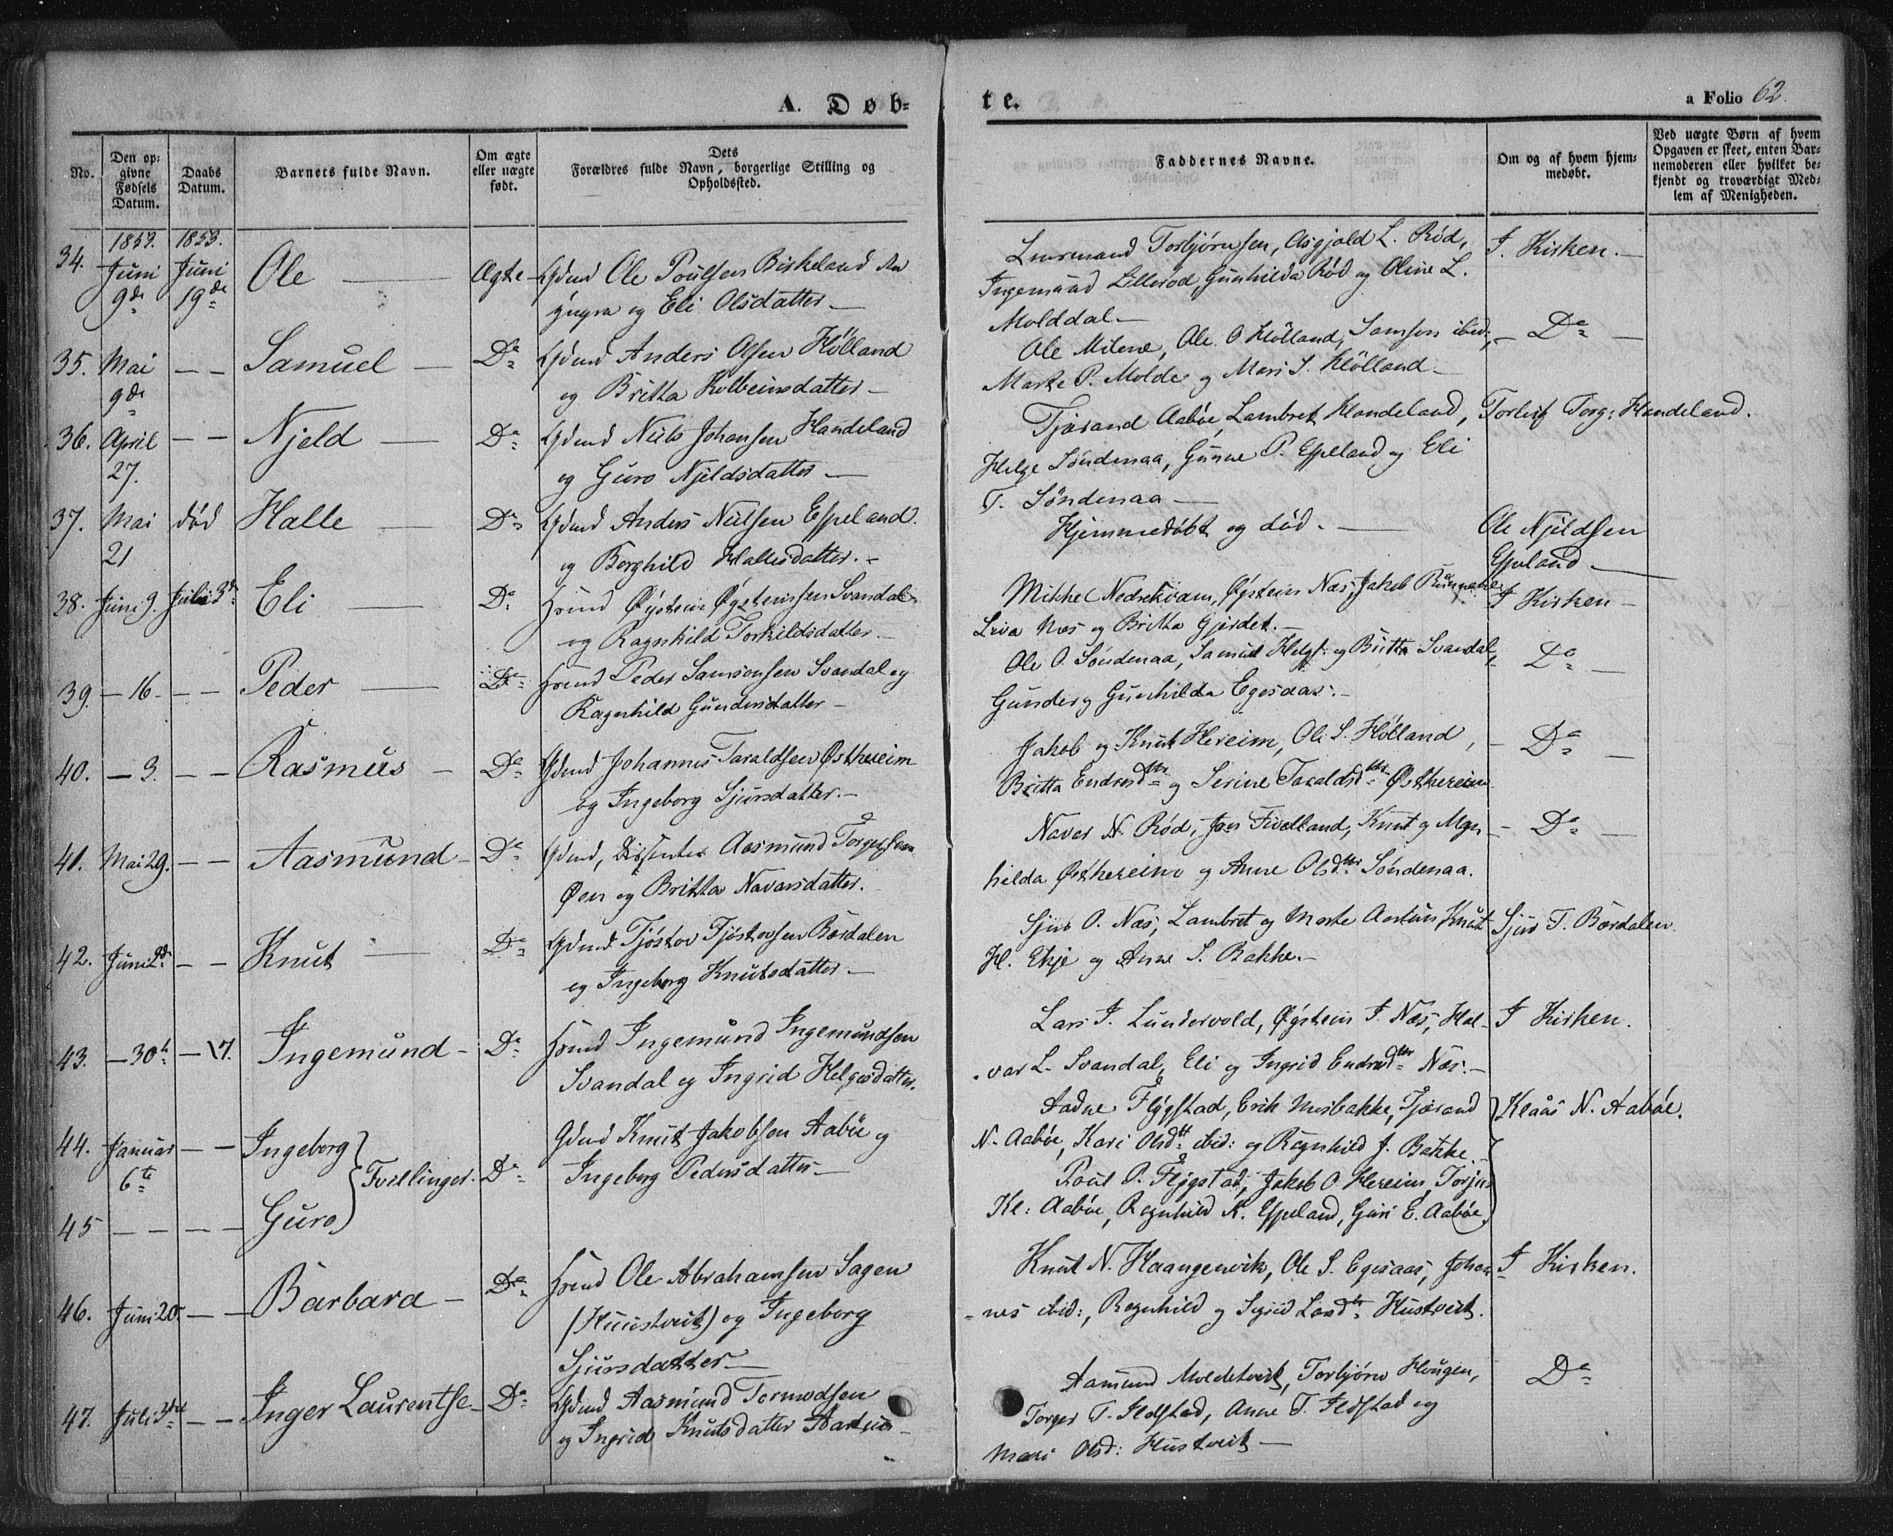 A. Døb-
te.
a Folio 62.
No.
Den op-
givne
Fødsels
Datum.
Daabs
Datum.
Barnets fulde Navn.
Om ægte
eller uægte
født.
Dets
Forældres fulde Navn, borgerlige Stilling og
Opholdssted.
Faddernes Navne.
Om og af hvem hjem-
medøbt.
Ved uægte Børn af hvem
Opgaven er skeet, enten Bar-
nemoderen eller hvilket be-
kjendt og troværdigt Med-
lem af Menigheden.
1853. 1853.
34. Juni 9de Juni 19de Ole — Ægte Gdmd Ole Poulsen Birkeland
og Eli Olsdatter —
Torbjørnsen, Asgjald L. Rød,
Ingemund Lillerød, Gunhilda Rød og Oline L.
Molddal —
I Kirken. —
35. Mai 9de — — Samuel — Do Gdmd Anders Olsen Hölland
og Britta Kolbeinsdatter —
Ole Milene, Ole O. Hölland, Samson ibid;
Marte P. Molde og Mari S. Hölland —
— Do —
36. April 27. — — Njeld — Do Gdmd Niels Johansen Handeland
og Guro Njeldsdatter —
Tjærand Aabøe, Lambret Handeland, Torleif Torg: Handeland.
Helge Söndenaa, Gunne P. Espeland og Eli
T. Söndenaa —
37. Mai 21 død Halle — Do Gdmd Anders Nielsen Espeland.
og Borghild Hallesdatter. —
Hjemmedøbt og død. —
Ole Njeldsen
Espeland —
38. Juni 9. Juli 3de Eli — Do Hmd Øystein Øysteinsen Svandal
og Ragnhild Torkildsdatter —
Mikkel Nedrekvam, Øystein Næs, Jakob
Næs og Britta Gjerdet. —
I Kirken —
39. — 16. — — Peder — Do Hmd Peder Samsonsen Svandal og
Ragnhild Gundersdatter —
Ole O. Söndenaa, Samuel Helgs: og Britta Svandal,
Gunder og Gunhilda Egesaas. —
Do —
40. — 3. — — Rasmus — Do Gdmd Johannes Taraldsen Østhereim
og Ingeborg Sjursdatter. —
Jakob og Knut Hereim, Ole S. Hölland,
Britta Endresdtr og Serine Taraldsdtr Østhereim
— Do —
41. Mai 29. — — Aasmund — Do Gdmd, Dissenter Aasmund Torgersen
Øen og Britta Navarsdatter.
Navar N. Rød, Jon Fivelland, Knut og Mgn
hilda Østhereim og Anne Olsdtr Söndenaa.
— Do —
42. Juni 2de — — Knut — Do Gdmd Tjøstov Tjøstovsen Børdalen
og Ingeborg Knutsdatter —
Sjur O. Næs, Lambret og Marte Aartun, Knut
H. Ekje og Anne S. Bakke. —
Sjur T. Børdalen
43. — 30te — 17. Ingemund — Do Hmd Ingemund Ingemundsen
Svandal og Ingrid Helgesdatter.
Lars I. Lundervold, Øystein I. Næs, Hal-
var L. Svandal, Eli og Ingrid Endresdtr Næs. —
I Kirken.
44. Januar 6te — — Ingeborg } Tvellinger. Do Gdmd Knut Jakobsen Aabøe og
Ingeborg Pedersdatter —
Aadne Fløgstad, Erik Mosbakke, Tjærand
N. Aabøe, Kari Olsdtr ibid: og Ragnhild J. Bakke. —
Klaas N. Aabøe.
45 — — — — Guro
Poul P. Fløgstad, Jakob O. Hereim, Torjus
Kl: Aabøe, Ragnhild K. Espeland, Guri E. Aabøe.
46. Juni 20. — — Barbara — Do Hmd Ole Abrahamsen Sagen
(Huustveit) og Ingeborg
Sjursdatter —
Knut N. Haangenvik, Ole S. Egesaas, Johan-
nes ibid:, Ragnhild og Sigrid Larsdtr Hustveit.
I Kirken.
47. Juli 3die — — Inger Laurentse — Do Gdmd Aasmund Tormodsen
og Ingrid Knutsdatter Aartun —
Aamund Moldetveit, Torbjørn Hougen,
Torger T. Ildstad, Anne T. Ildstad og
Mari Olsd: Hustveit —
Do